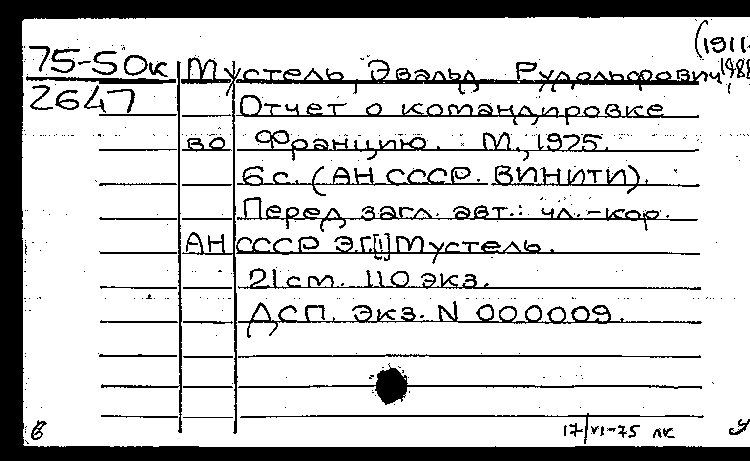 (1911-
75-50к Мустель, Эвальд Рудольфович, 1988
2647 Отчет о командировке
во Францию. М., 1975.
6 с. (АН СССР. ВИНИТИ).
Перед загл. авт.: чл.-кор.
АН СССР Э.Г[!]Мустель.
21 см. 110 экз.
ДСП. Экз. N 000009.
в 17/VI-75 лк